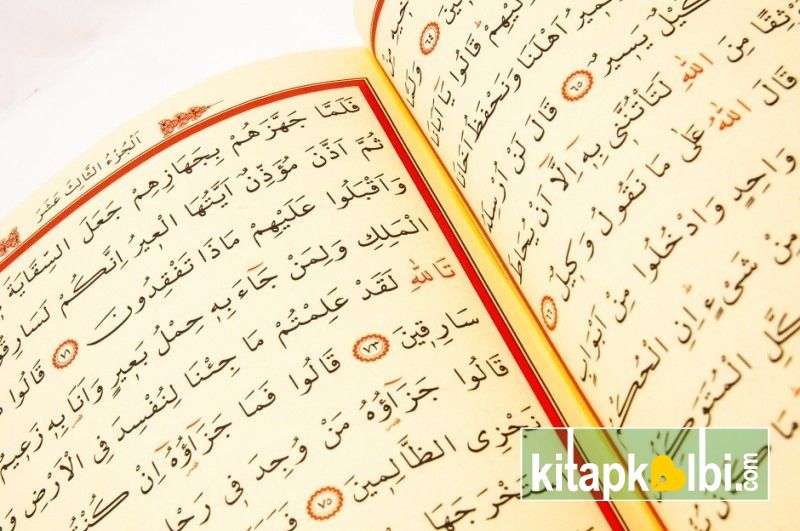 ـينَ ٦٤ وَلَمَّا
اِلَيْهِمْ قَالُوا يَٓا اَبَانَا
ـمِيرُ اَهْلَنَا وَنَحْفَظُ اَخَانَا
كَيْلٌ يَسِيرٌ ٦٥ قَالَ لَنْ اُرْسِلَهُ
ـوْثِقًا مِنَ اللّٰهِ لَتَأْتُنَّنِى بِهٖٓ اِلَّٓا اَنْ يُحَاطَ
قَالَ اللّٰهُ عَلٰى مَا نَقُولُ وَكِيلٌ ٦٦
وَاحِدٍ وَادْخُلُوا مِنْ اَبْوَابٍ
مِنْ شَىْءٍ اِنِ الْحُكْمُ
ـكَّلِ الْمُتَوَكِّـ
مَا كَانَ
اَلْجُزْءُ الثَّالِثَ عَشَرَ
فَلَمَّا جَهَّزَهُمْ بِجَهَازِهِمْ جَعَلَ السِّقَايَةَ
ثُمَّ اَذَّنَ مُؤَذِّنٌ اَيَّتُهَا الْعِيرُ اِنَّكُمْ لَسَارِقُـ
وَاَقْبَلُوا عَلَيْهِمْ مَاذَا تَفْقِدُونَ ٧١ قَالُوا
الْمَلِكِ وَلِمَنْ جَٓاءَ بِهٖ حِمْلُ بَعِيرٍ وَاَنَا بِهٖ زَعِيمٌ
تَاللّٰهِ لَقَدْ عَلِمْتُمْ مَا جِئْنَا لِنُفْسِدَ فِى الْاَرْضِ وَ
سَارِقِينَ ٧٣ قَالُوا فَمَا جَزَٓاؤُهُٓ اِنْ كُنْتُمْ
قَالُوا جَزَٓاؤُهُ مَنْ وُجِدَ فِى رَحْلِـ
نَجْزِى الظَّالِمِينَ ٧٥ فَبَدَ
اسْتَخْرَجَهَا
kitapkalbi.com